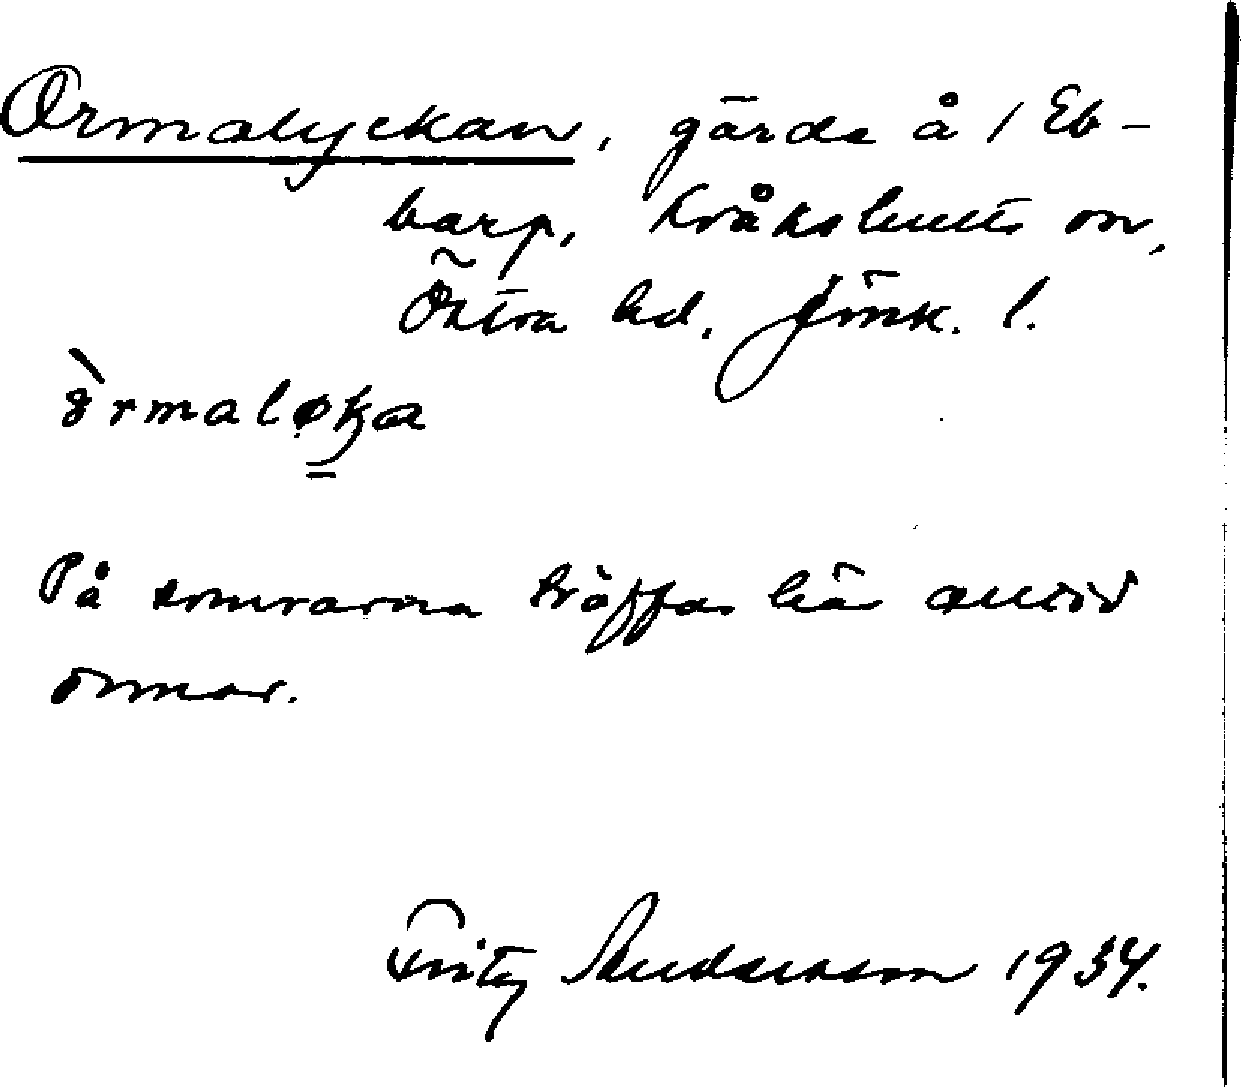 Ormalyckan, gärde å 1 Eb-
barp, Kråkshults sn,
Östra hd. Jönk. l.
òrmaløka
På somrarna träffas här alltid
ormar.
Fritz Andersson 1934.